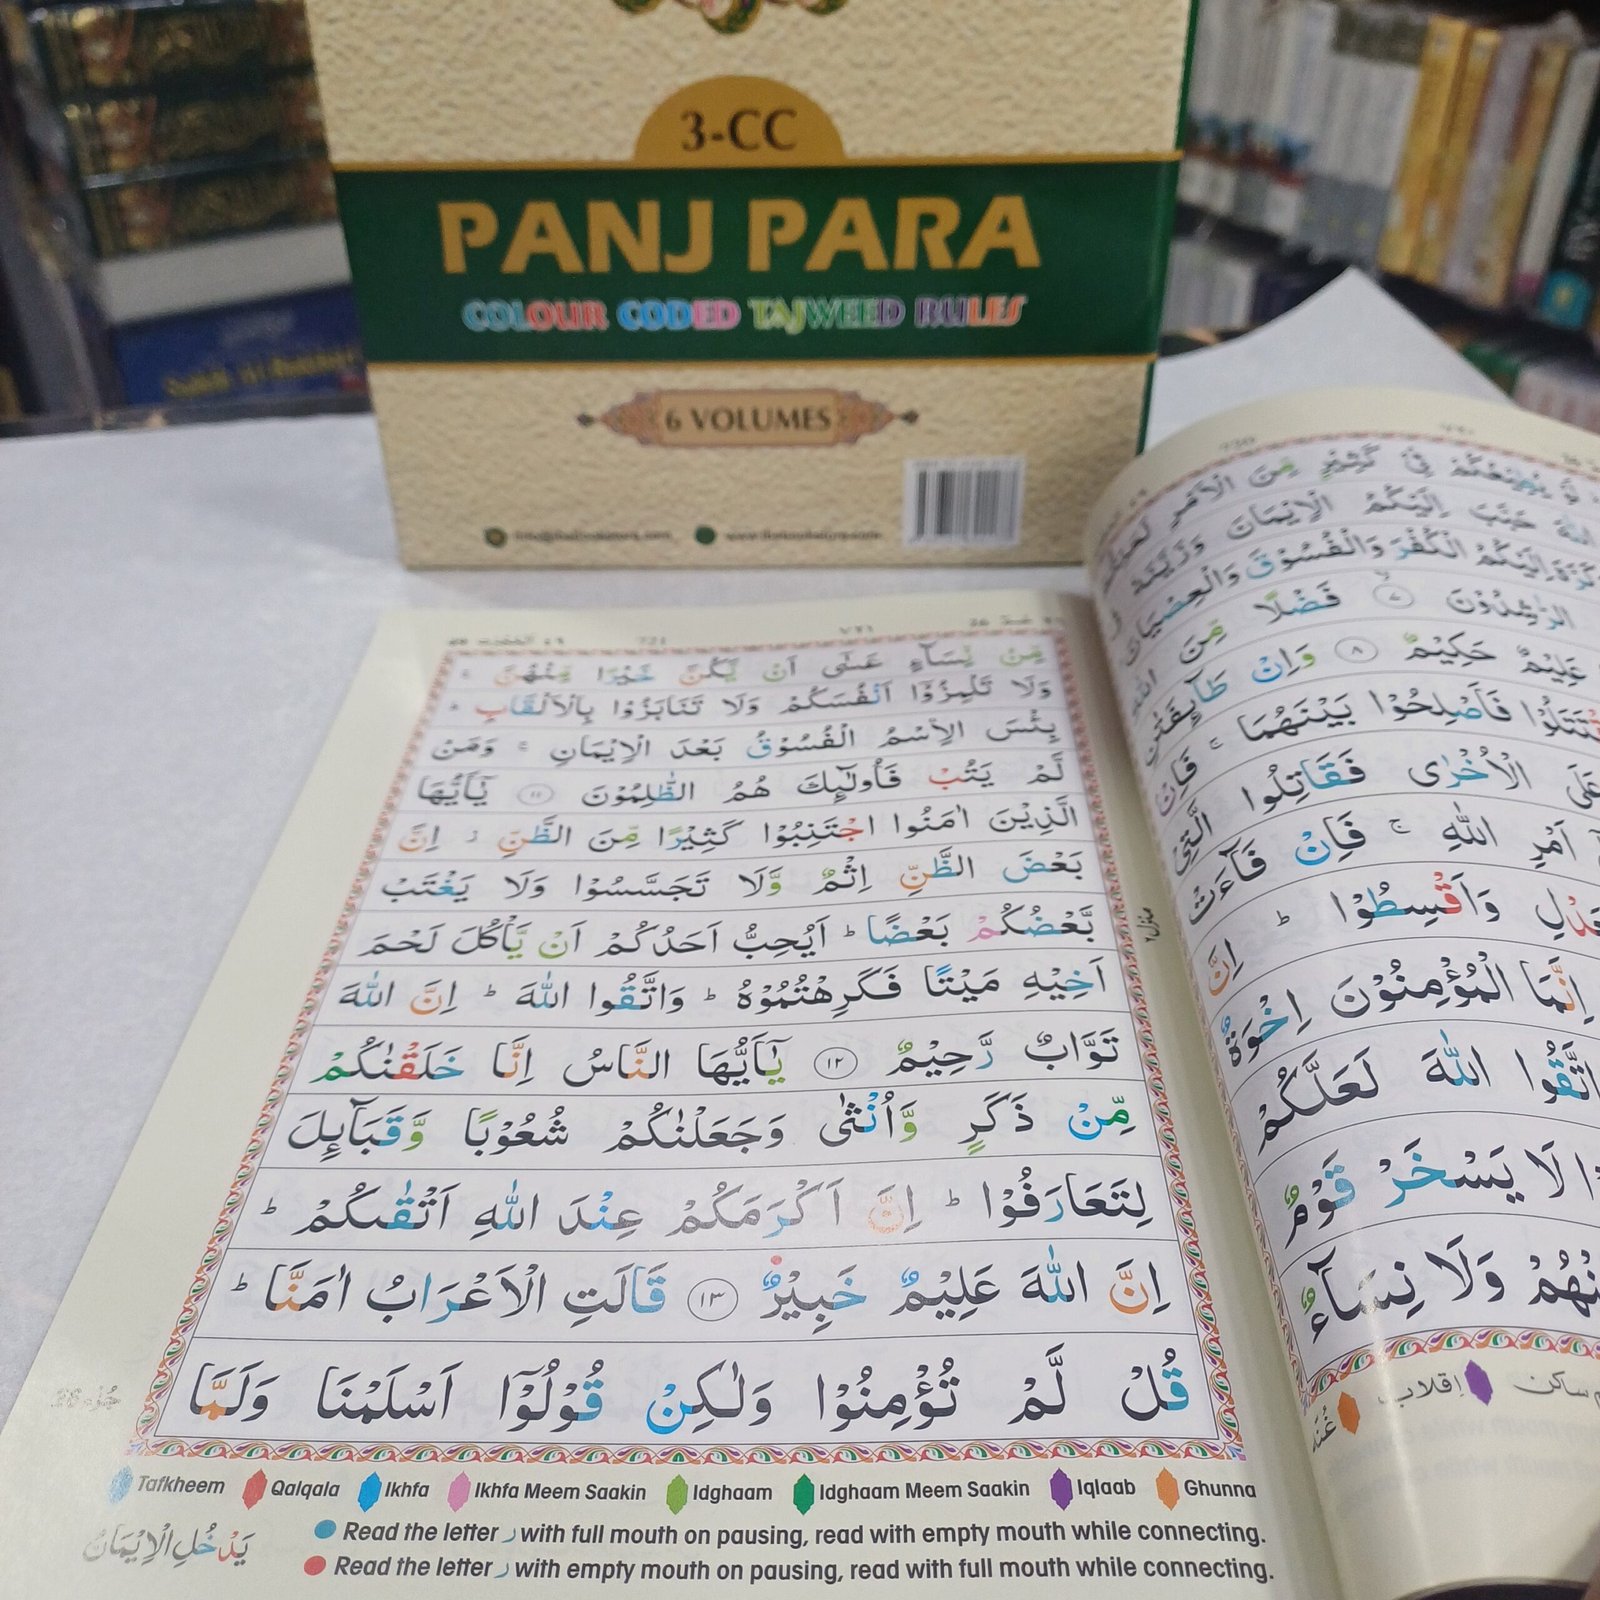 3-CC
PANJ PARA
COLOUR CODED TAJWEED RULES
6 VOLUMES
721
٧٢١
مِّنْ نِّسَآءٍ عَسٰۤى اَنْ يَّكُنَّ خَيْرًا مِّنْهُنَّ ۚ
وَلَا تَلْمِزُوْۤا اَنْفُسَكُمْ وَلَا تَنَابَزُوْا بِالْاَلْقَابِ ؕ
بِئْسَ الْاِسْمُ الْفُسُوْقُ بَعْدَ الْاِيْمَانِ ۚ وَمَنْ
لَّمْ يَتُبْ فَاُولٰٓئِكَ هُمُ الظّٰلِمُوْنَ ﴿۱۱﴾ يٰۤاَيُّهَا
الَّذِيْنَ اٰمَنُوا اجْتَنِبُوْا كَثِيْرًا مِّنَ الظَّنِّ ؗ اِنَّ
بَعْضَ الظَّنِّ اِثْمٌ وَّلَا تَجَسَّسُوْا وَلَا يَغْتَبْ
بَّعْضُكُمْ بَعْضًا ؕ اَيُحِبُّ اَحَدُكُمْ اَنْ يَّاْكُلَ لَحْمَ
اَخِيْهِ مَيْتًا فَكَرِهْتُمُوْهُ ؕ وَاتَّقُوا اللّٰهَ ؕ اِنَّ اللّٰهَ
تَوَّابٌ رَّحِيْمٌ ﴿۱۲﴾ يٰۤاَيُّهَا النَّاسُ اِنَّا خَلَقْنٰكُمْ
مِّنْ ذَكَرٍ وَّاُنْثٰى وَجَعَلْنٰكُمْ شُعُوْبًا وَّقَبَآئِلَ
لِتَعَارَفُوْا ؕ اِنَّ اَكْرَمَكُمْ عِنْدَ اللّٰهِ اَتْقٰىكُمْ ؕ
اِنَّ اللّٰهَ عَلِيْمٌ خَبِيْرٌ ﴿۱۳﴾ قَالَتِ الْاَعْرَابُ اٰمَنَّا ؕ
قُلْ لَّمْ تُؤْمِنُوْا وَلٰكِنْ قُوْلُوْۤا اَسْلَمْنَا وَلَمَّا
Tafkheem Qalqala Ikhfa Ikhfa Meem Saakin Idghaam Idghaam Meem Saakin Iqlaab Ghunna
Read the letter ر with full mouth on pausing, read with empty mouth while connecting.
Read the letter ر with empty mouth on pausing, read with full mouth while connecting.
يَدْخُلِ الْاِيْمَانُ
مِّنَ الْاَمْرِ
اِلَيْكُمُ الْاِيْمَانَ
اِلَيْكُمُ الْكُفْرَ وَالْفُسُوْقَ وَالْعِصْيَانَ
الرّٰشِدُوْنَ ﴿۷﴾ فَضْلًا مِّنَ اللّٰهِ
عَلِيْمٌ حَكِيْمٌ ﴿۸﴾ وَاِنْ طَآئِفَتٰنِ
فَاَصْلِحُوْا بَيْنَهُمَا ۚ فَاِنْ
عَلَى الْاُخْرٰى فَقَاتِلُوا الَّتِيْ
اَمْرِ اللّٰهِ ۚ فَاِنْ فَآءَتْ
وَاَقْسِطُوْا ؕ اِنَّ
اِنَّمَا الْمُؤْمِنُوْنَ اِخْوَةٌ
اللّٰهَ لَعَلَّكُمْ
لَا يَسْخَرْ قَوْمٌ
وَلَا نِسَآءٌ
ساكن اِقلاب غُنّه